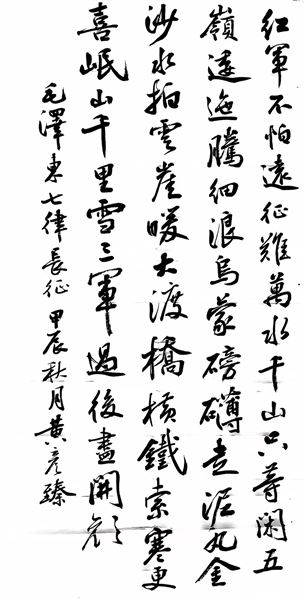 紅軍不怕遠征難萬水千山只等閑五
嶺逶迤騰細浪烏蒙磅礴走泥丸金
沙水拍雲崖暖大渡橋橫鐵索寒更
喜岷山千里雪三軍過後盡開顏
毛澤東七律長征甲辰秋月黃彥臻